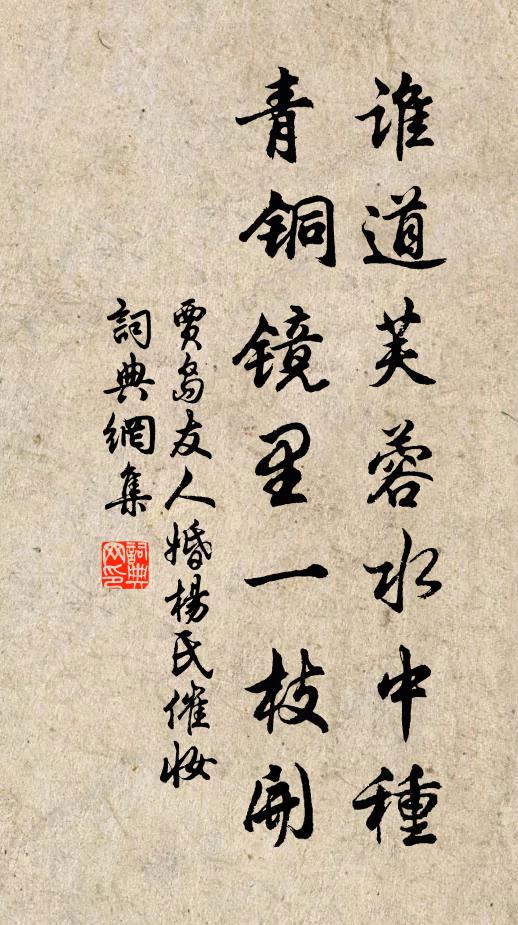 谁道芙蓉水中種
青铜镜里一枝开
贾岛友人婚楊氏催妆
詞典網集
詞典网印